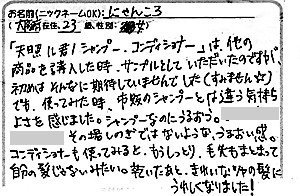 お名前(ニックネームOK):にゃんころ
(大阪府在住、23歳、性別:
「天日照ル君ノシャンプー・コンディショナー」は、他の
商品を購入した時、サンプルとしていただいたのですが、
初めはそんなに期待していませんでした(すみません☆)
でも、使ってみた時、市販のシャンプーとは違う気持ち
よさを感じました。シャンプーなのにうるおう。
その場しのぎではないような、うるおい感。
コンディショナーも使ってみると、もうしっとり、毛先もまとまって
自分の髪じゃないみたい。乾いたあと、きれいなツヤの髪に
うれしくなりました!